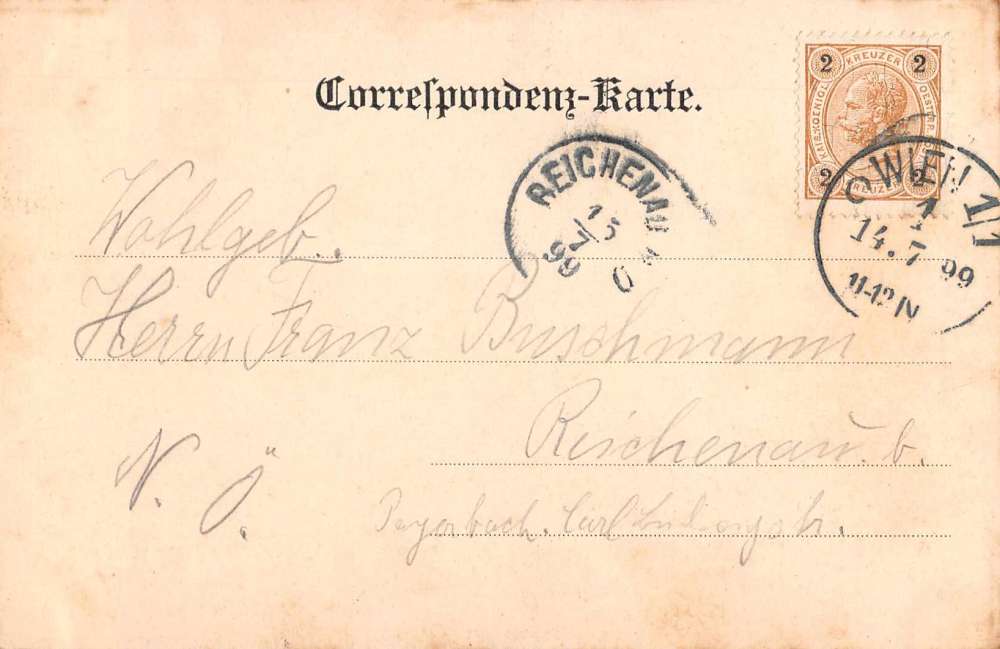 Correspondenz-Karte.
2 KREUZER 2
KAIS. KOENIGL. OESTERR.
2 KREUZER 2
WIEN 1/1
1
14.7 99
11-12 N
REICHENAU
15
7
99
Wohlgeb.
Herrn Franz Buschmann
Reichenau b.
Payerbach.
N. Ö.